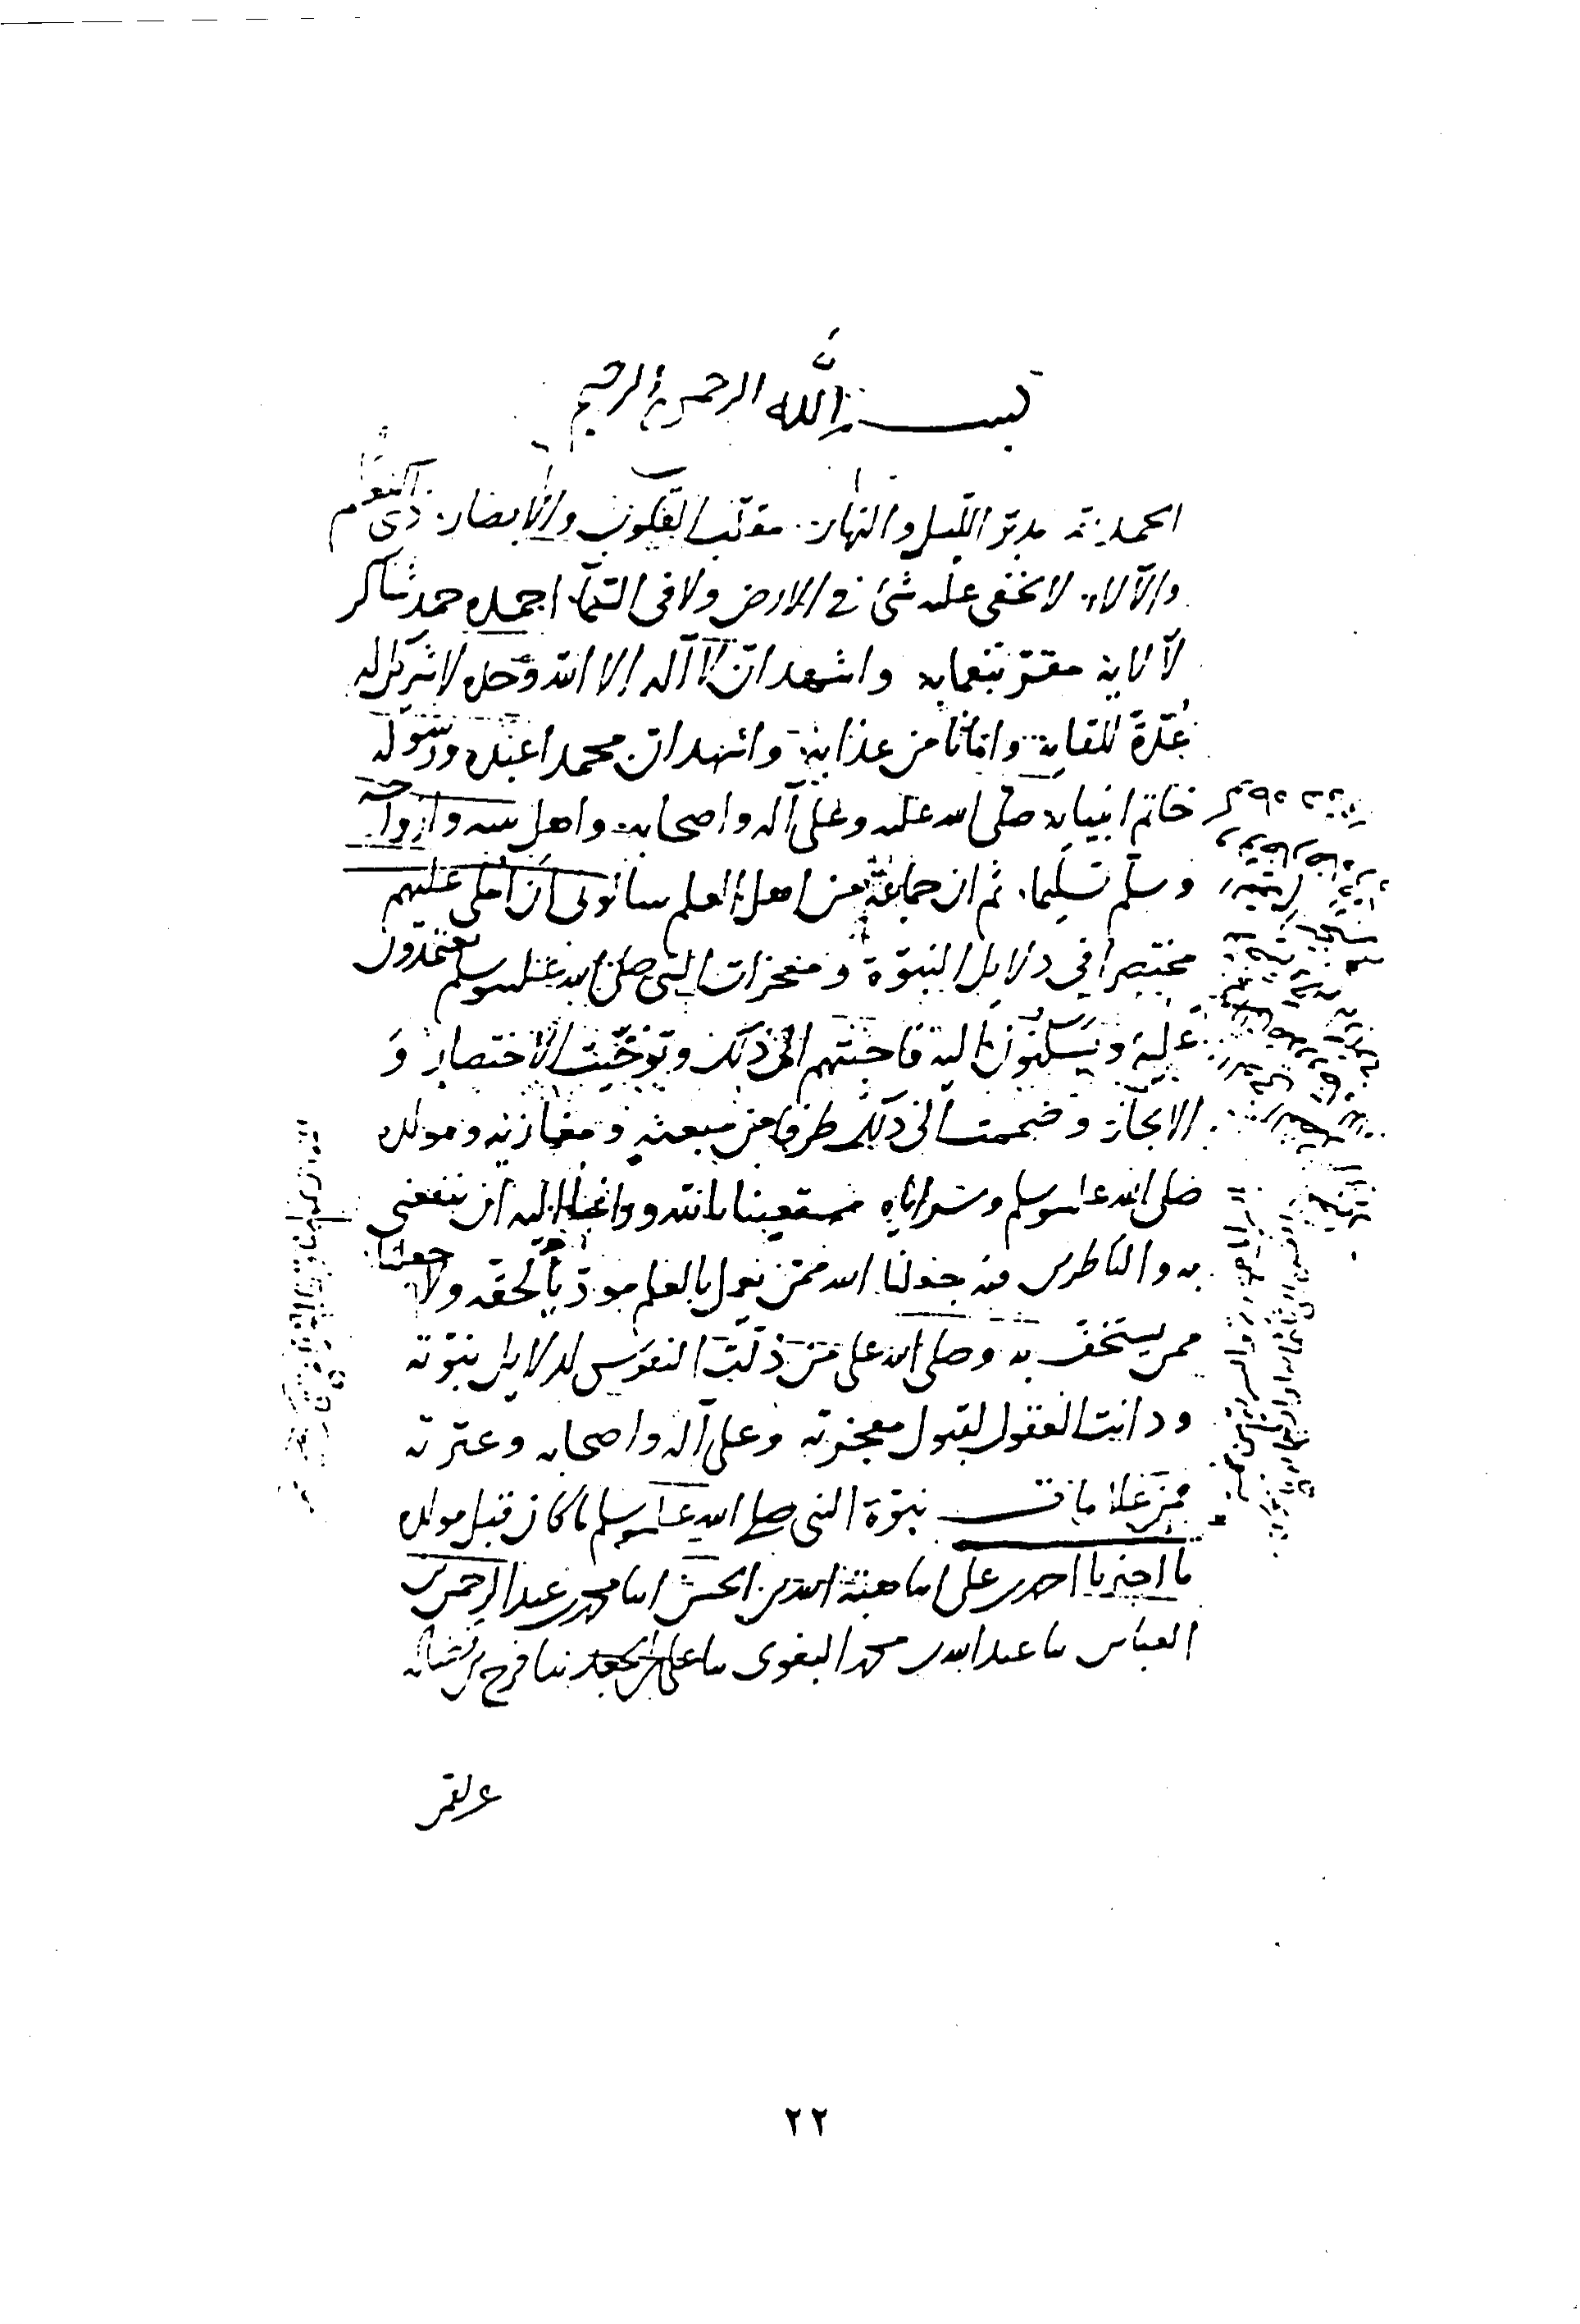 بسم الله الرحمن الرحيم
الحمد لله مدبر الليل والنهار مقلب القلوب والأبصار ذى النعم
والآلاء لا يخفى عليه شئ في الارض ولا في السماء احمده حمد شاكر
لآلائه مقر بنعمائه واشهد ان لا آله إلا الله وحده لا شريك له
عدة للقائه وامانا من عذابه واشهد ان محمدا عبده ورسوله
خاتم انبيائه صلى الله عليه وعلى آله واصحابه واهل بيته وازواجه
وسلم تسليما ثم ان جماعة من اهل العلم سألونى أن املى عليهم
مختصرا في دلايل النبوة ومعجزات النبي صلى الله عليه وسلم يعتمدون
عليه ويسكنون اليه فاجبتهم الى ذلك وتوخيت الاختصار و
الايجاز وضممت الى ذلك طرفا من مبعثه ومغازيه ومولده
صلى الله عليه وسلم وسراياه مستعينا بالله وراغبا اليه ان ينفعنى
به والناظرين فيه جعلنا الله ممن يعمل بالعلم مؤديا لحقه ولا جعلنا
ممن يستخف به وصلى الله على من ذلت النفوس لدلايل نبوته
ودانت العقول لقبول معجزته وعلى آله واصحابه وعترته
فمن علامات نبوة النبي صلى الله عليه وسلم ما كان قبل مولده
ما اخبرنا احمد بن على انبا هبة الله بن الحسن انبا محمد بن عبد الرحمن بن
العباس ثنا عبد الله بن محمد البغوى ثنا على بن الجعد ثنا فرج بن فضالة
عن لقمن
٢٢